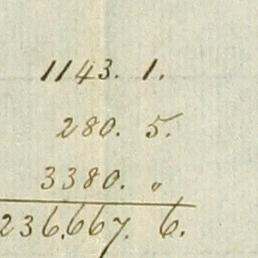 1143. 1.
280. 5.
3380. "
236,667. 6.